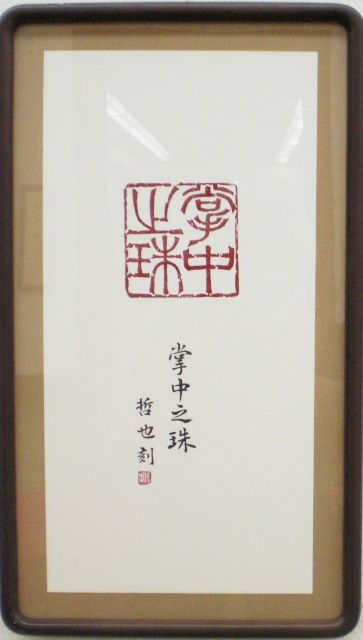 掌中之珠
掌中之珠
哲也刻